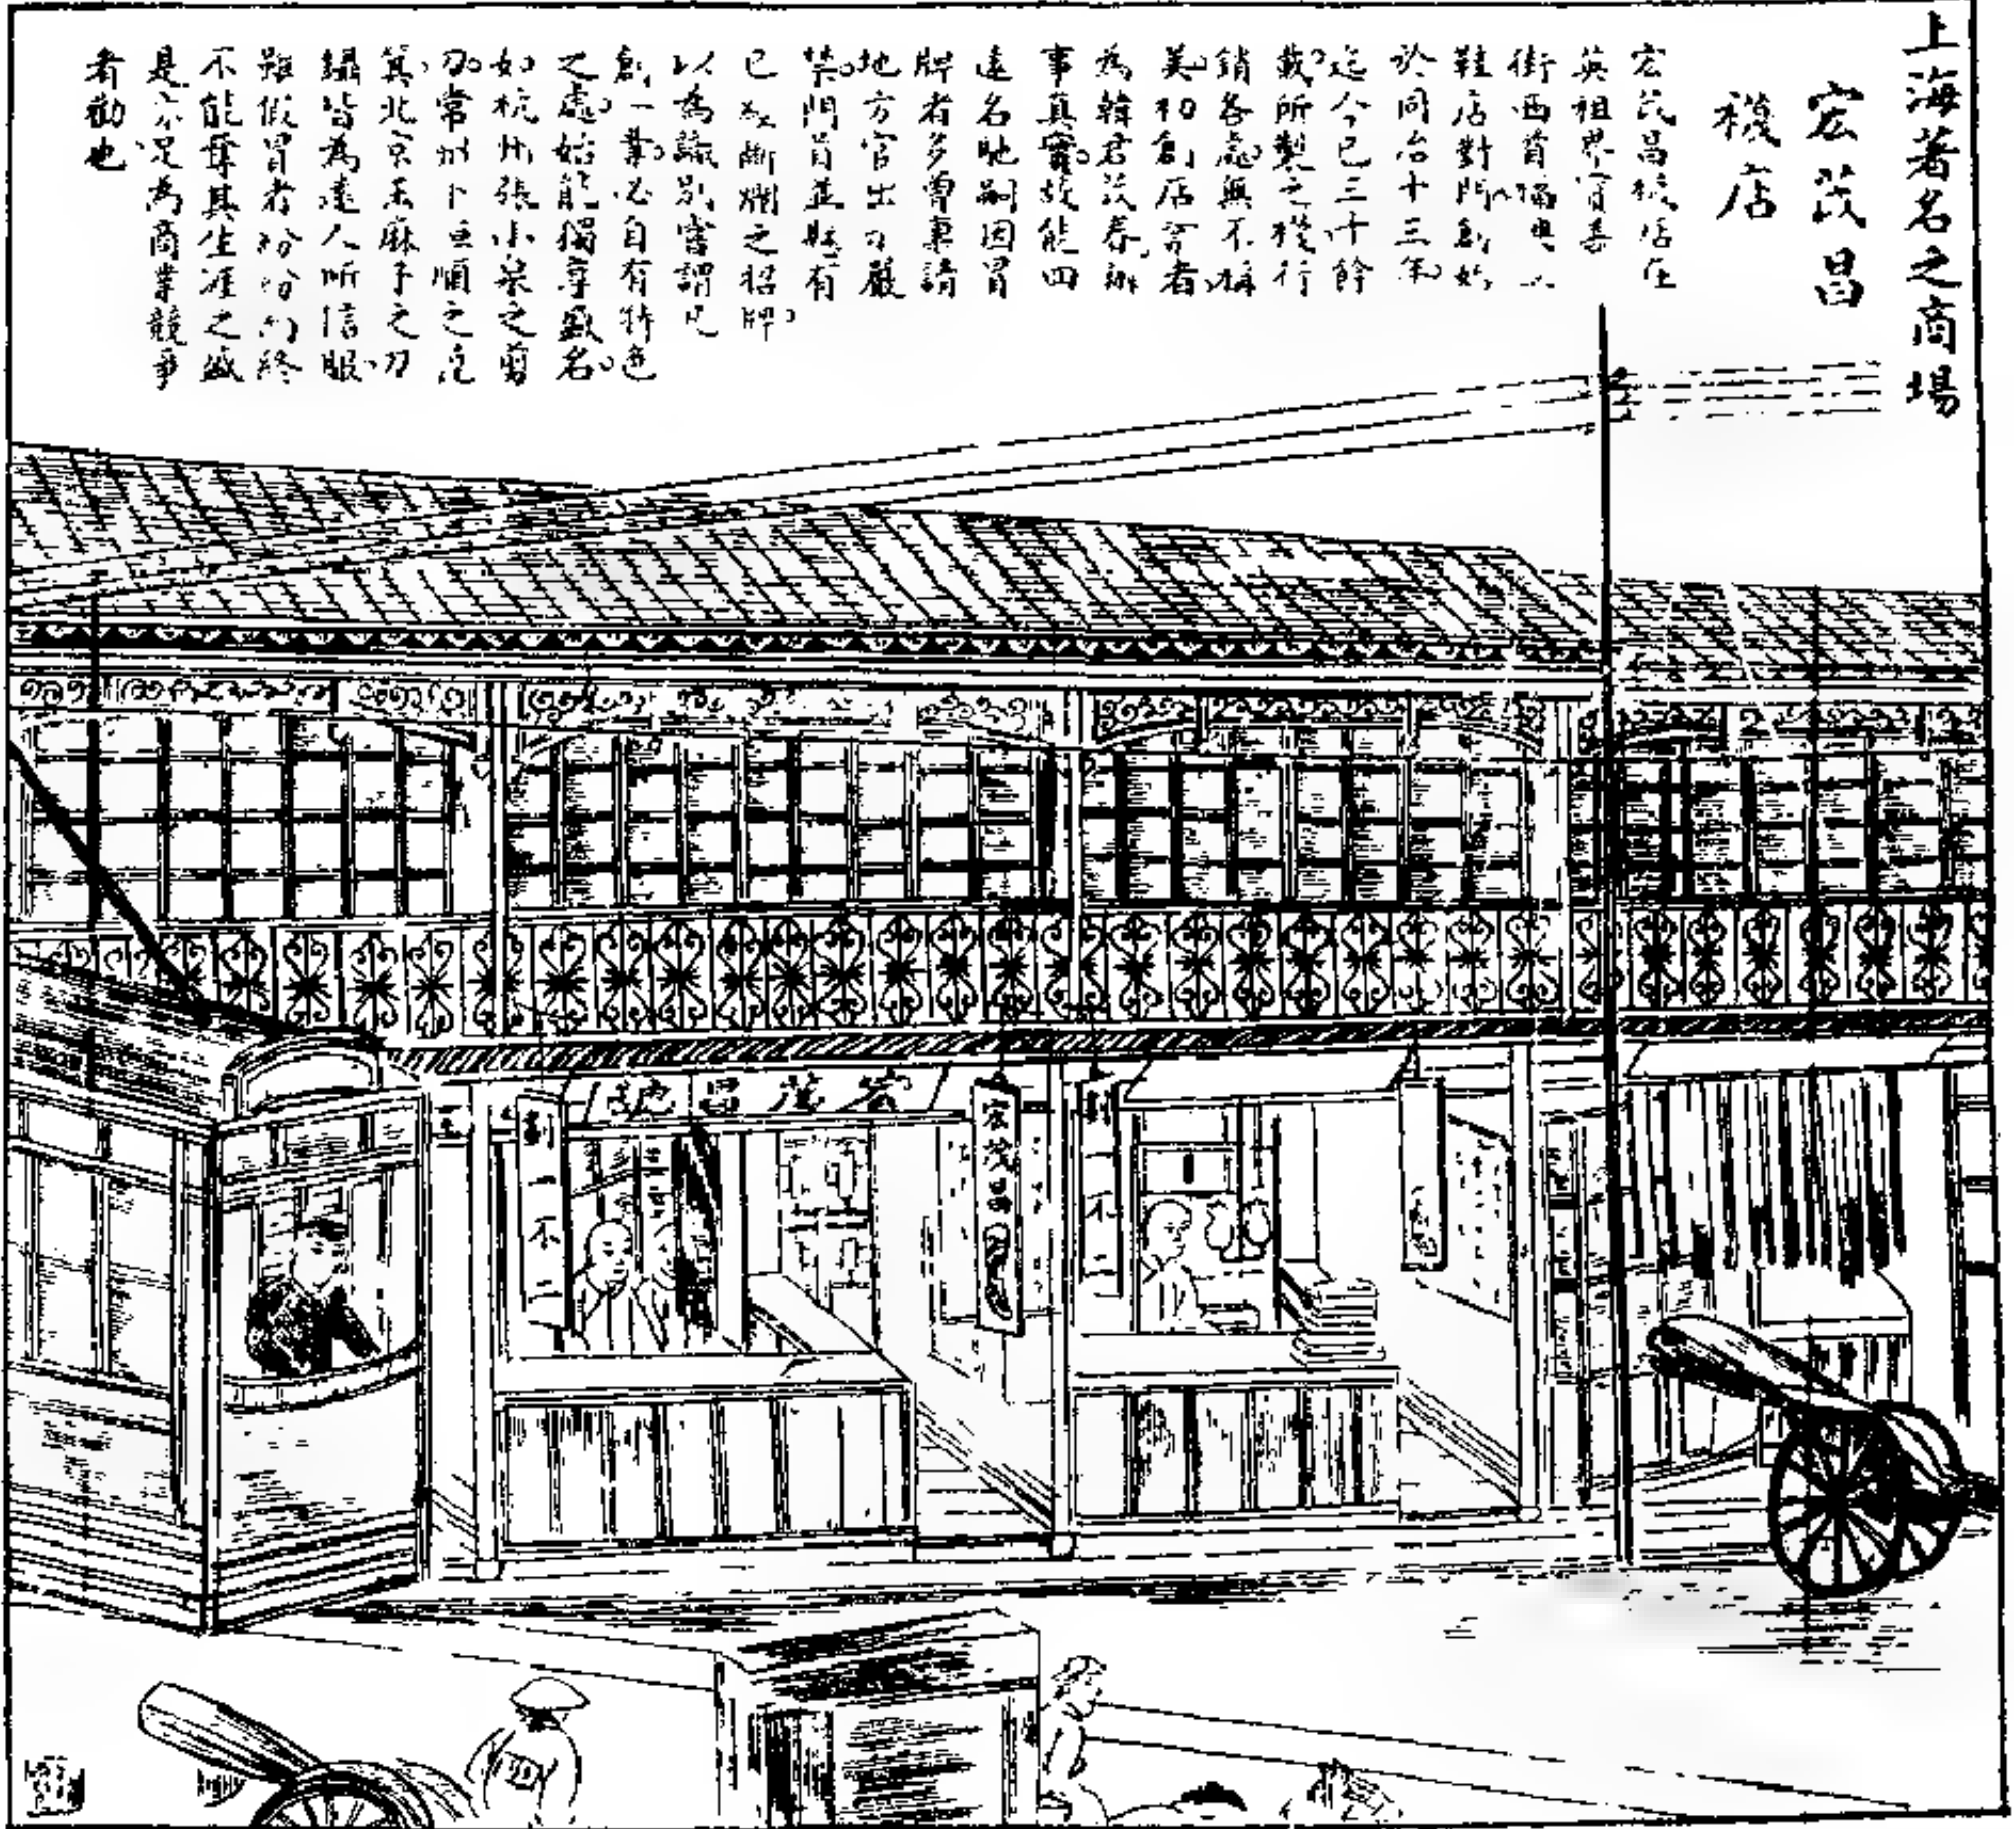 上海著名之商場
宏茂昌
襪店
宏茂昌襪店在
英租界寶善
街西首
鞋店對門創始
於同治十三年
迄今已三十餘
載所製之襪行
銷各處無不稱
美初創店業者
為韓君茂春辦
事真實故能四
遠名馳嗣因冒
牌者多曾稟請
地方官出示嚴
禁門首並懸有
已 斷爛之招牌
以為識別嘗謂凡
創一業必自有特色
之處始能獨享盛名
如杭州張小泉之剪
刀常州卜恒順之篦
箕北京王麻子之刀
鑷皆為遠人所信服
雖假冒者紛紛而終
不能奪其生涯之盛
是亦足為商業競爭
者勸也
宏茂昌號
劃一不二
宏茂昌
劃一不二